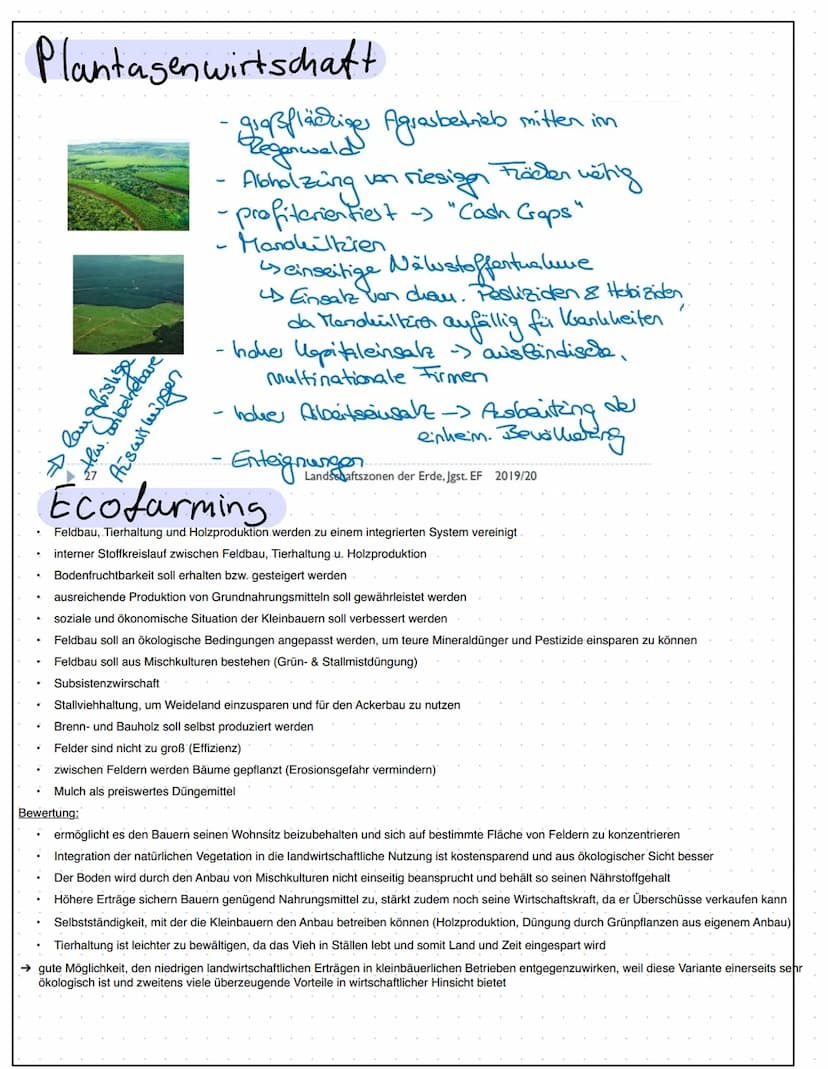 Plantagenwirtschaft
- großflächiger Agrarbetrieb mitten im
Regenwald
- Abholzung von riesigen Flächen nötig
- profitorientiert -> "Cash Crops"
- Monokulturen
↳ einseitige Nährstoffentnahme
↳ Einsatz von chem. Pestiziden & Herbiziden,
da Monokulturen anfällig für Krankheiten
- hoher Kapitaleinsatz -> ausländische,
multinationale Firmen
- hoher Arbeitseinsatz -> Ausbeutung der
einheim. Bevölkerung
- Enteignungen
=> langfristige
bzw. unbehebbare
Auswirkungen
27 Landschaftszonen der Erde, Jgst. EF 2019/20
Ecofarming
• Feldbau, Tierhaltung und Holzproduktion werden zu einem integrierten System vereinigt
• interner Stoffkreislauf zwischen Feldbau, Tierhaltung u. Holzproduktion
• Bodenfruchtbarkeit soll erhalten bzw. gesteigert werden
• ausreichende Produktion von Grundnahrungsmitteln soll gewährleistet werden
• soziale und ökonomische Situation der Kleinbauern soll verbessert werden
• Feldbau soll an ökologische Bedingungen angepasst werden, um teure Mineraldünger und Pestizide einsparen zu können
• Feldbau soll aus Mischkulturen bestehen (Grün- & Stallmistdüngung)
• Subsistenzwirschaft
• Stallviehhaltung, um Weideland einzusparen und für den Ackerbau zu nutzen
• Brenn- und Bauholz soll selbst produziert werden
• Felder sind nicht zu groß (Effizienz)
• zwischen Feldern werden Bäume gepflanzt (Erosionsgefahr vermindern)
• Mulch als preiswertes Düngemittel
Bewertung:
• ermöglicht es den Bauern seinen Wohnsitz beizubehalten und sich auf bestimmte Fläche von Feldern zu konzentrieren
• Integration der natürlichen Vegetation in die landwirtschaftliche Nutzung ist kostensparend und aus ökologischer Sicht besser
• Der Boden wird durch den Anbau von Mischkulturen nicht einseitig beansprucht und behält so seinen Nährstoffgehalt
• Höhere Erträge sichern Bauern genügend Nahrungsmittel zu, stärkt zudem noch seine Wirtschaftskraft, da er Überschüsse verkaufen kann
• Selbstständigkeit, mit der die Kleinbauern den Anbau betreiben können (Holzproduktion, Düngung durch Grünpflanzen aus eigenem Anbau)
• Tierhaltung ist leichter zu bewältigen, da das Vieh in Ställen lebt und somit Land und Zeit eingespart wird
→ gute Möglichkeit, den niedrigen landwirtschaftlichen Erträgen in kleinbäuerlichen Betrieben entgegenzuwirken, weil diese Variante einerseits sehr
ökologisch ist und zweitens viele überzeugende Vorteile in wirtschaftlicher Hinsicht bietet